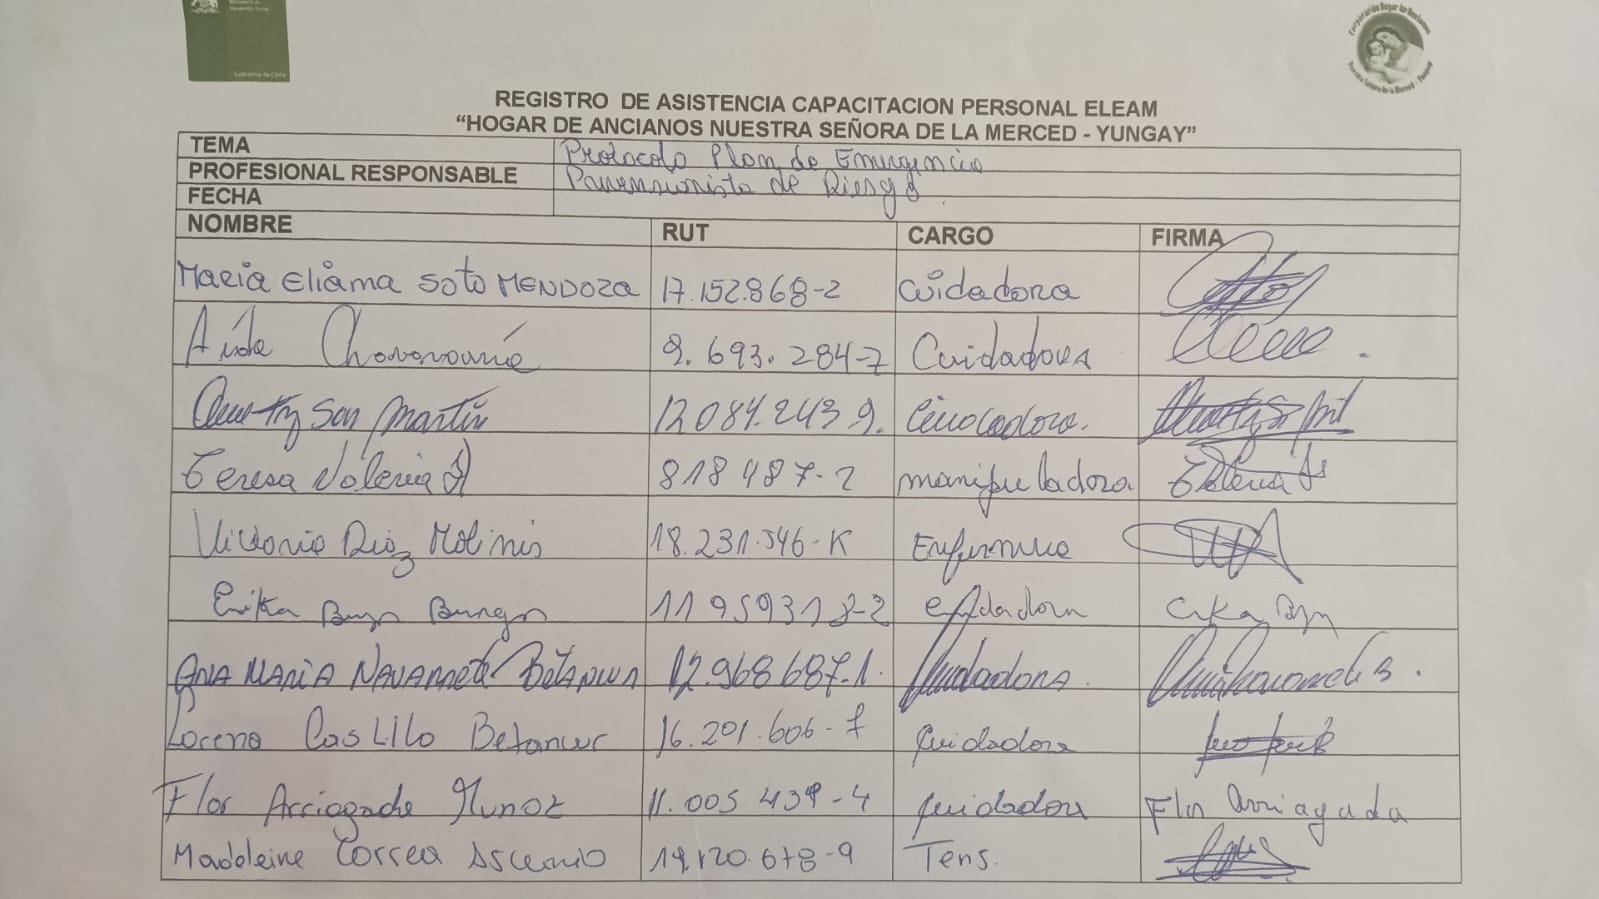 Ministerio de
Desarrollo Social
Gobierno de Chile
Corporación Hogar de Ancianos
Nuestra Señora de la Merced - Yungay
REGISTRO DE ASISTENCIA CAPACITACION PERSONAL ELEAM
“HOGAR DE ANCIANOS NUESTRA SEÑORA DE LA MERCED - YUNGAY”
TEMA Protocolo Plan de Emergencia
PROFESIONAL RESPONSABLE Prevensionista de Riesgo
FECHA
NOMBRE RUT CARGO FIRMA
Maria Eliama Soto MENDOZA 17.152.868-2 Cuidadora
Aida 9.693.284-7 Cuidadora
San Martin 12084.243 9. Cuidadora.
Teresa Valeria 818 487-2 manipuladora
Victoria Diaz Molinis 18.231.346-K Enfermera
Erika Burgos 11959318-2 Cuidadora Erika
ANA MARIA NAVARRETE BETANCUR 12.968.687-1. Cuidadora.
Lorena Castillo Betancur 16.201.606-7 Cuidadora
Flor Arriagada Munoz 11.005 439-4 Cuidadora Flor Arriagada
Madeleine Correa Ascencio 19.120.678-9 Tens.